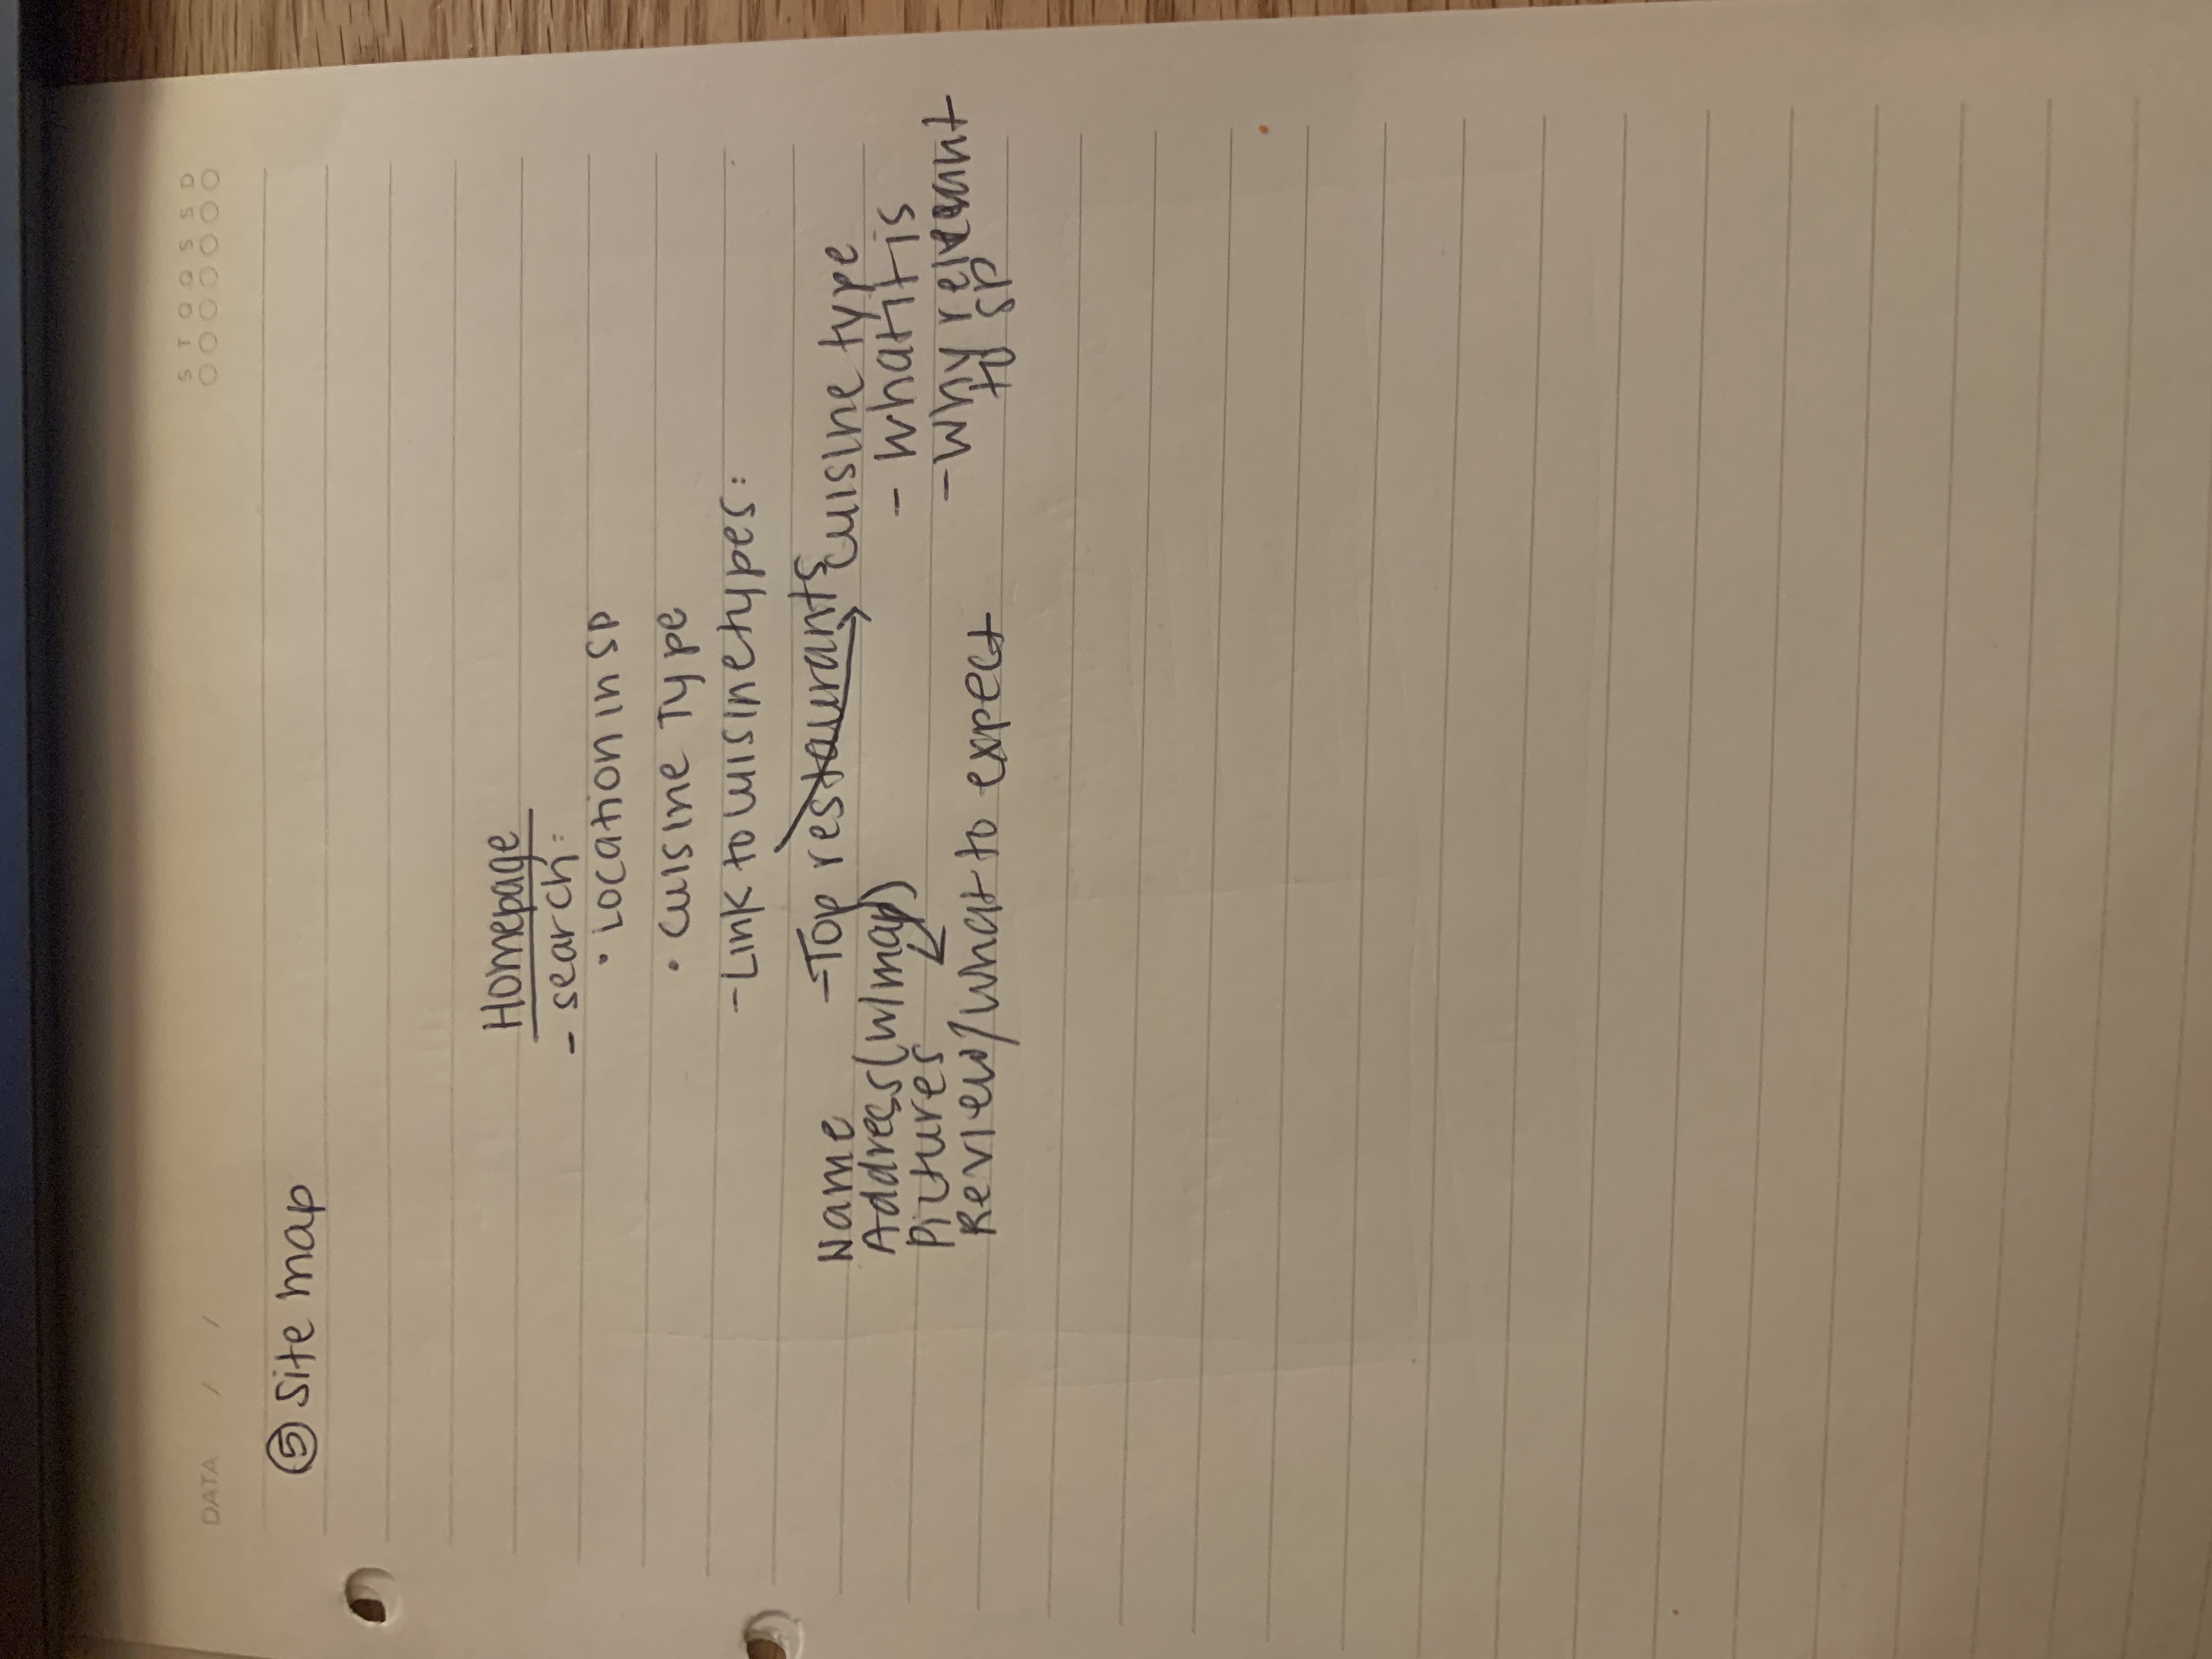 DATA / /
S T Q Q S S D
⑤ Site map
Homepage
- search:
• Location in SP
• Cuisine Type
- Link to cuisine types:
- Top restaurants
Name
Address (w/map)
Pictures
Review/what to expect
Cuisine type
- What it is
- Why relevant
to SP